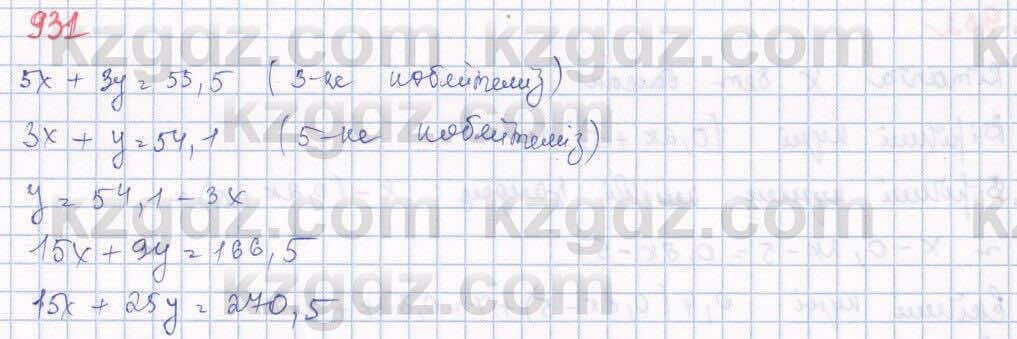 931
kzgdz.com
5x + 3y = 55,5 (3-ке көбейтеміз)
kzgdz.com
3x + y = 54,1 (5-ке көбейтеміз)
y = 54,1 - 3x
kzgdz.com
15x + 9y = 166,5
15x + 25y = 270,5
kzgdz.com